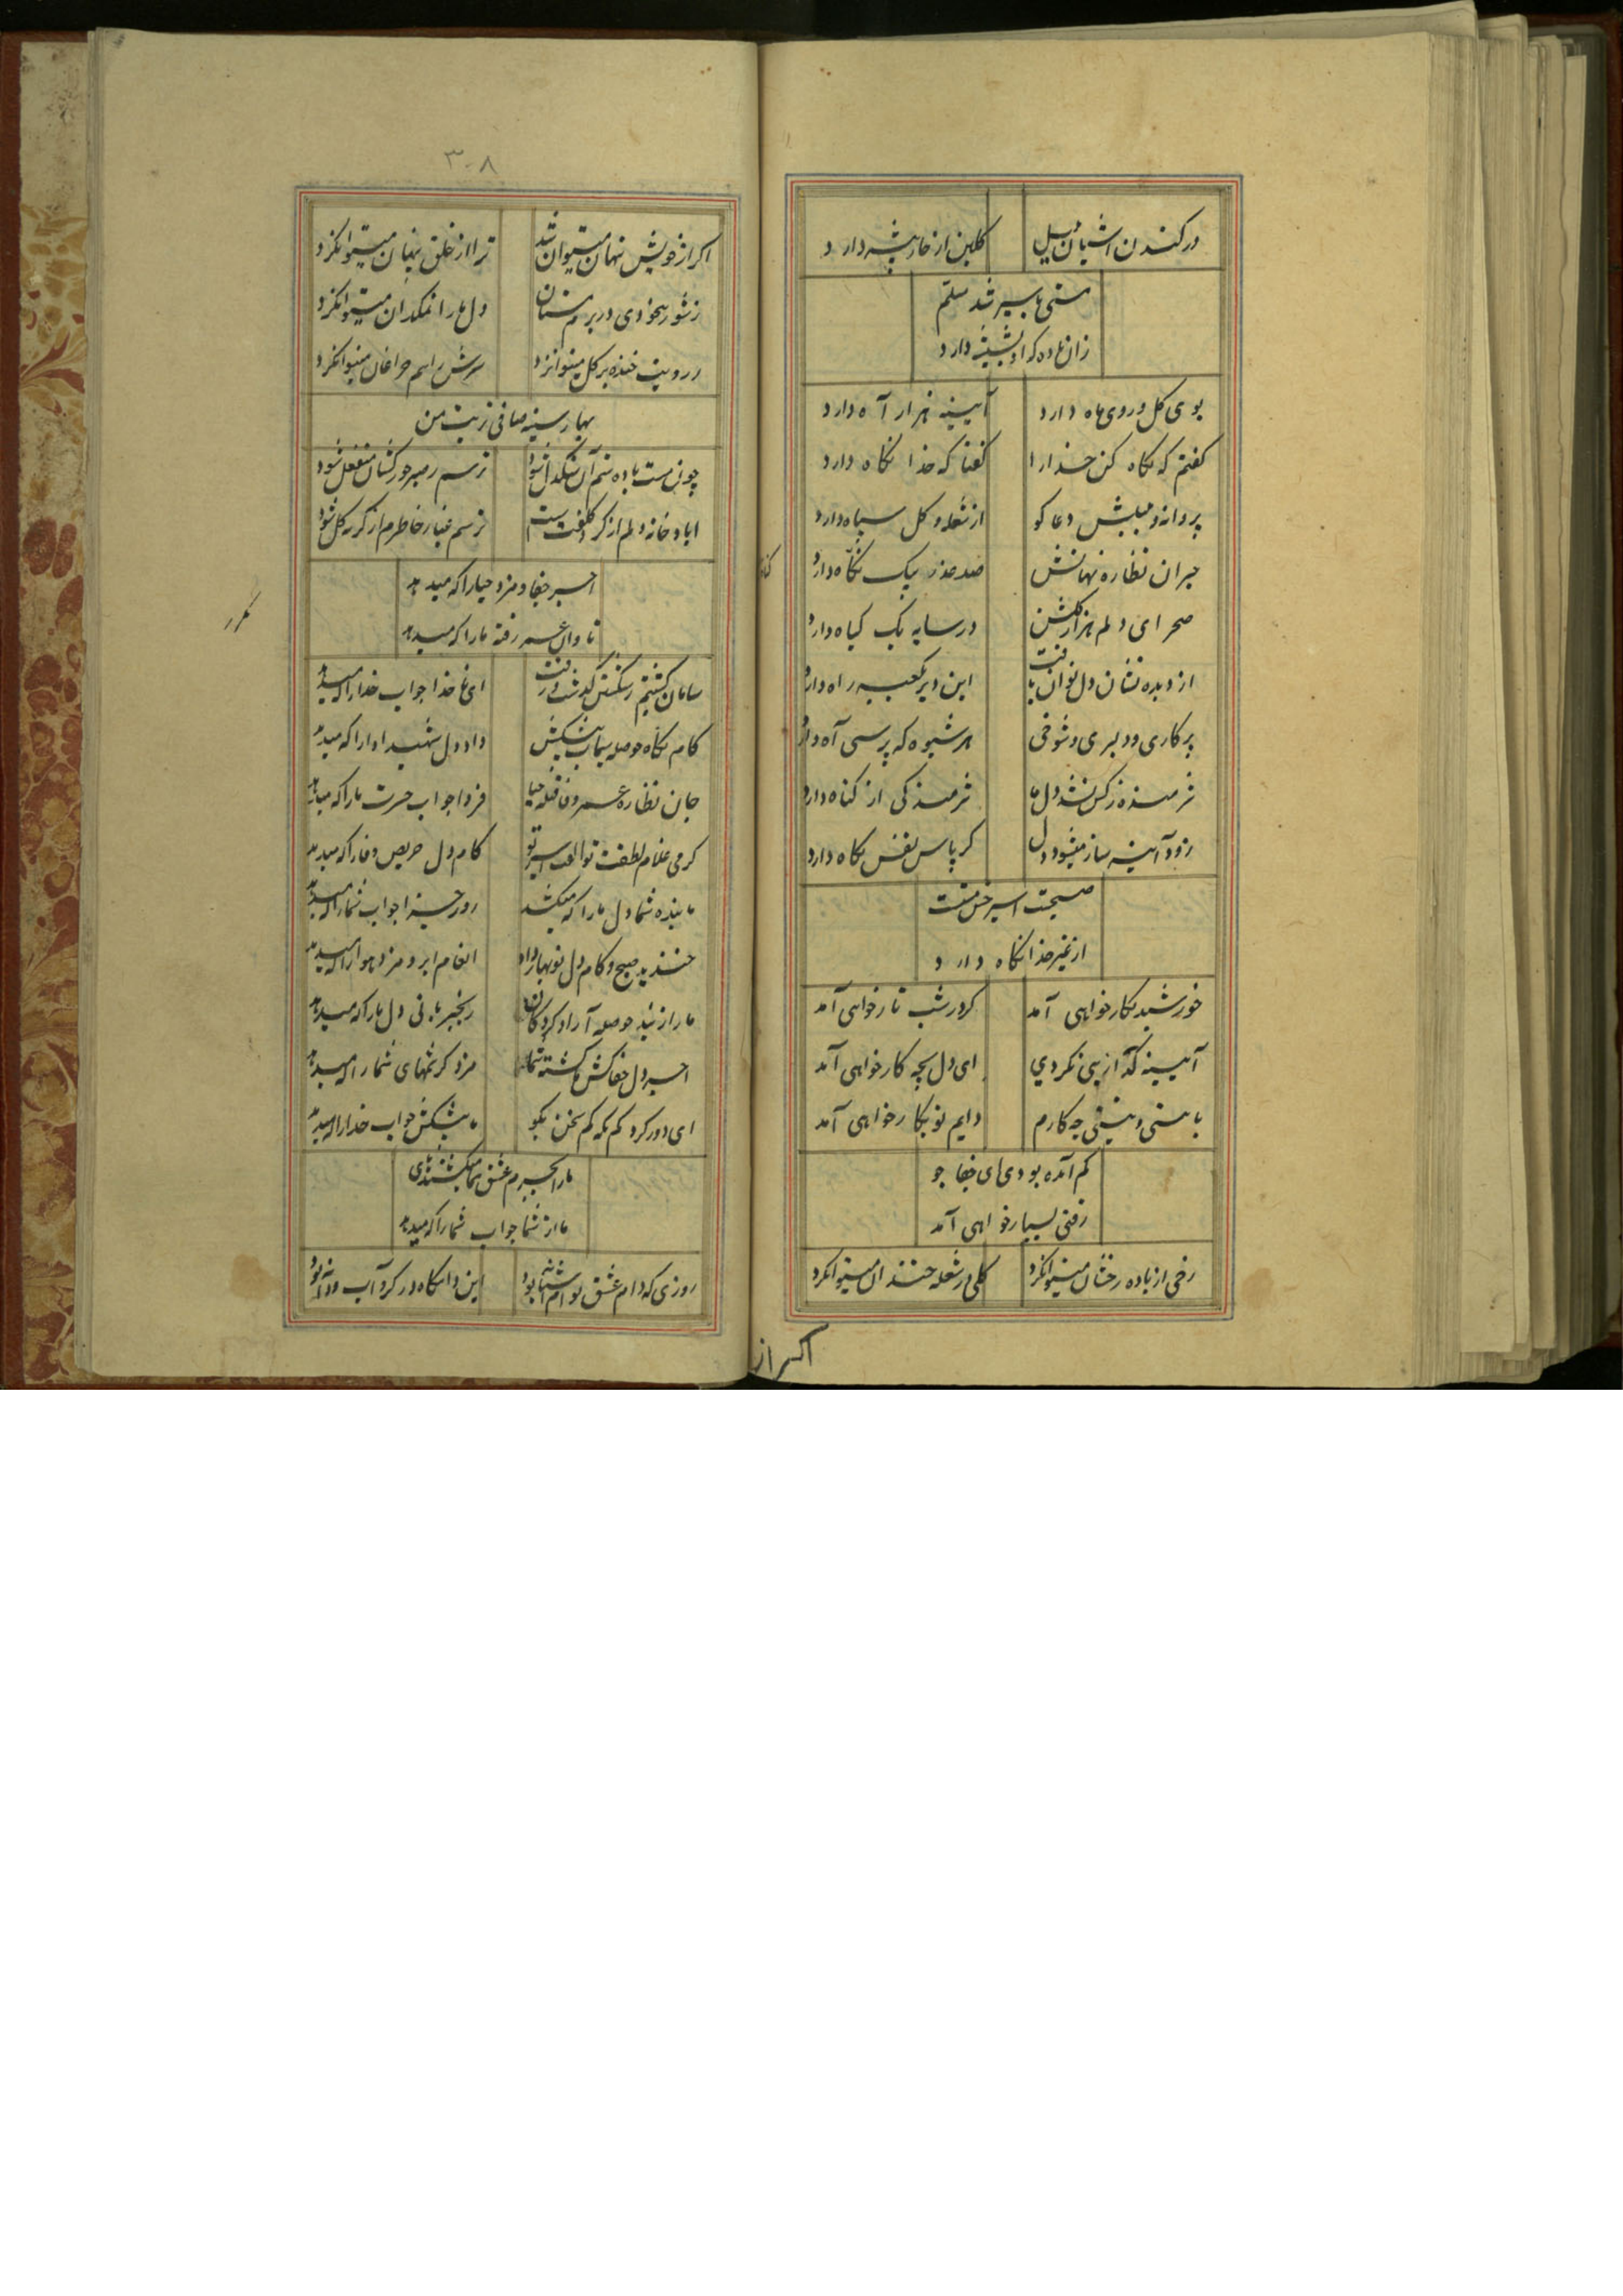 در کندن آشیان بلبل
کلبن از خار تیشه دارد
مستی با سیر شد مسلم
زان باده که او بشیشه دارد
بوی کل و روی ماه دارد
آیینه هزار آه دارد
کفتم که نکاه کن خدا را
کفتا که خدا نکاه دارد
پروانه و بلبلش دعا کو
از شعله و کل سپاه دارد
حیران نظاره نهانش
صد عذر بیک نکاه دارد
صحرای دلم هزار کلشن
در سایه یک کیاه دارد
از دیده نشان دل توان یافت
این دیر بکعبه راه دارد
پرکاری و دلبری و شوخی
هر شیوه که پرسی آه دارد
شرمنده زکس نشد دل ما
شرمندکی از کناه دارد
زود آینه ساز میشود دل
کر پاس نفس نکاه دارد
صحبت اسیر خس
از غیر خدا نکاه دارد
خورشید نکار خواهی آمد
کرد شب تار خواهی آمد
آیینه کداز یی نکردی
ای دل بچه کار خواهی آمد
با مستی و نیستی چه کارم
دایم تو بکار خواهی آمد
کم آمده بودی ای جفا جو
رفتی بسیار خواهی آمد
رخی از باده رخشان میتوانکرد
کلی در شعله خندان میتوانکرد
اکر از
۳۰۸
اکر از خویش پنهان میتوان شد
ترا از خلق پنهان میتوانکرد
ز شور بیخودی در بزم مستان
دل ما را نمکدان میتوانکرد
ز رویت خنده بر کل میتوانزد
سرش را هم چراغان میتوانکرد
بهار سینه صافی زیب من
چون مست باده ستم آن سنکدل شود
ترسم ز صبر جورکشان منفعل شود
اباد خانه دلم از کرد کلفت است
ترسم غبار خاطرم از کریه کل شود
اجر جفا و مزد حیا را که میدهد
تاوان عمر رفته ما را که میدهد
سامان کشتیم ز شکستن کذشت و رفت
ای ناخدا جواب خدا را که میدهد
کام نکاه حوصله سیماب پیشکش
داد دل شهید ادا را که میدهد
جان نظاره
فردا جواب حسرت ما را که میدهد
کرمی غلام لطفت تو الفت اسیر تو
کام دل حریص وفا را که میدهد
ما بنده شما دل ما را که میکشد
روز جزا جواب شما را که میدهد
خندید صبح و کام دل نوبهار داد
انعام ابر و مزد هوا را که میدهد
ما را ز بند حوصله آزاد کرد
دل ما را که میدهد
اجر دل جفاکش ما کشته شما
مزد کرشمهای شما را که میدهد
ای دور کرد کم نکه کم سخن بکو
ما پیشکش جواب خدا را که میدهد
ما را بجرم عشق شما میکشند های
ما از شما جواب شما را که میدهد
روزی که دام عشق تو ام آشیانه بود
این دامکاه در کرو آب و دانه بود
مکرر